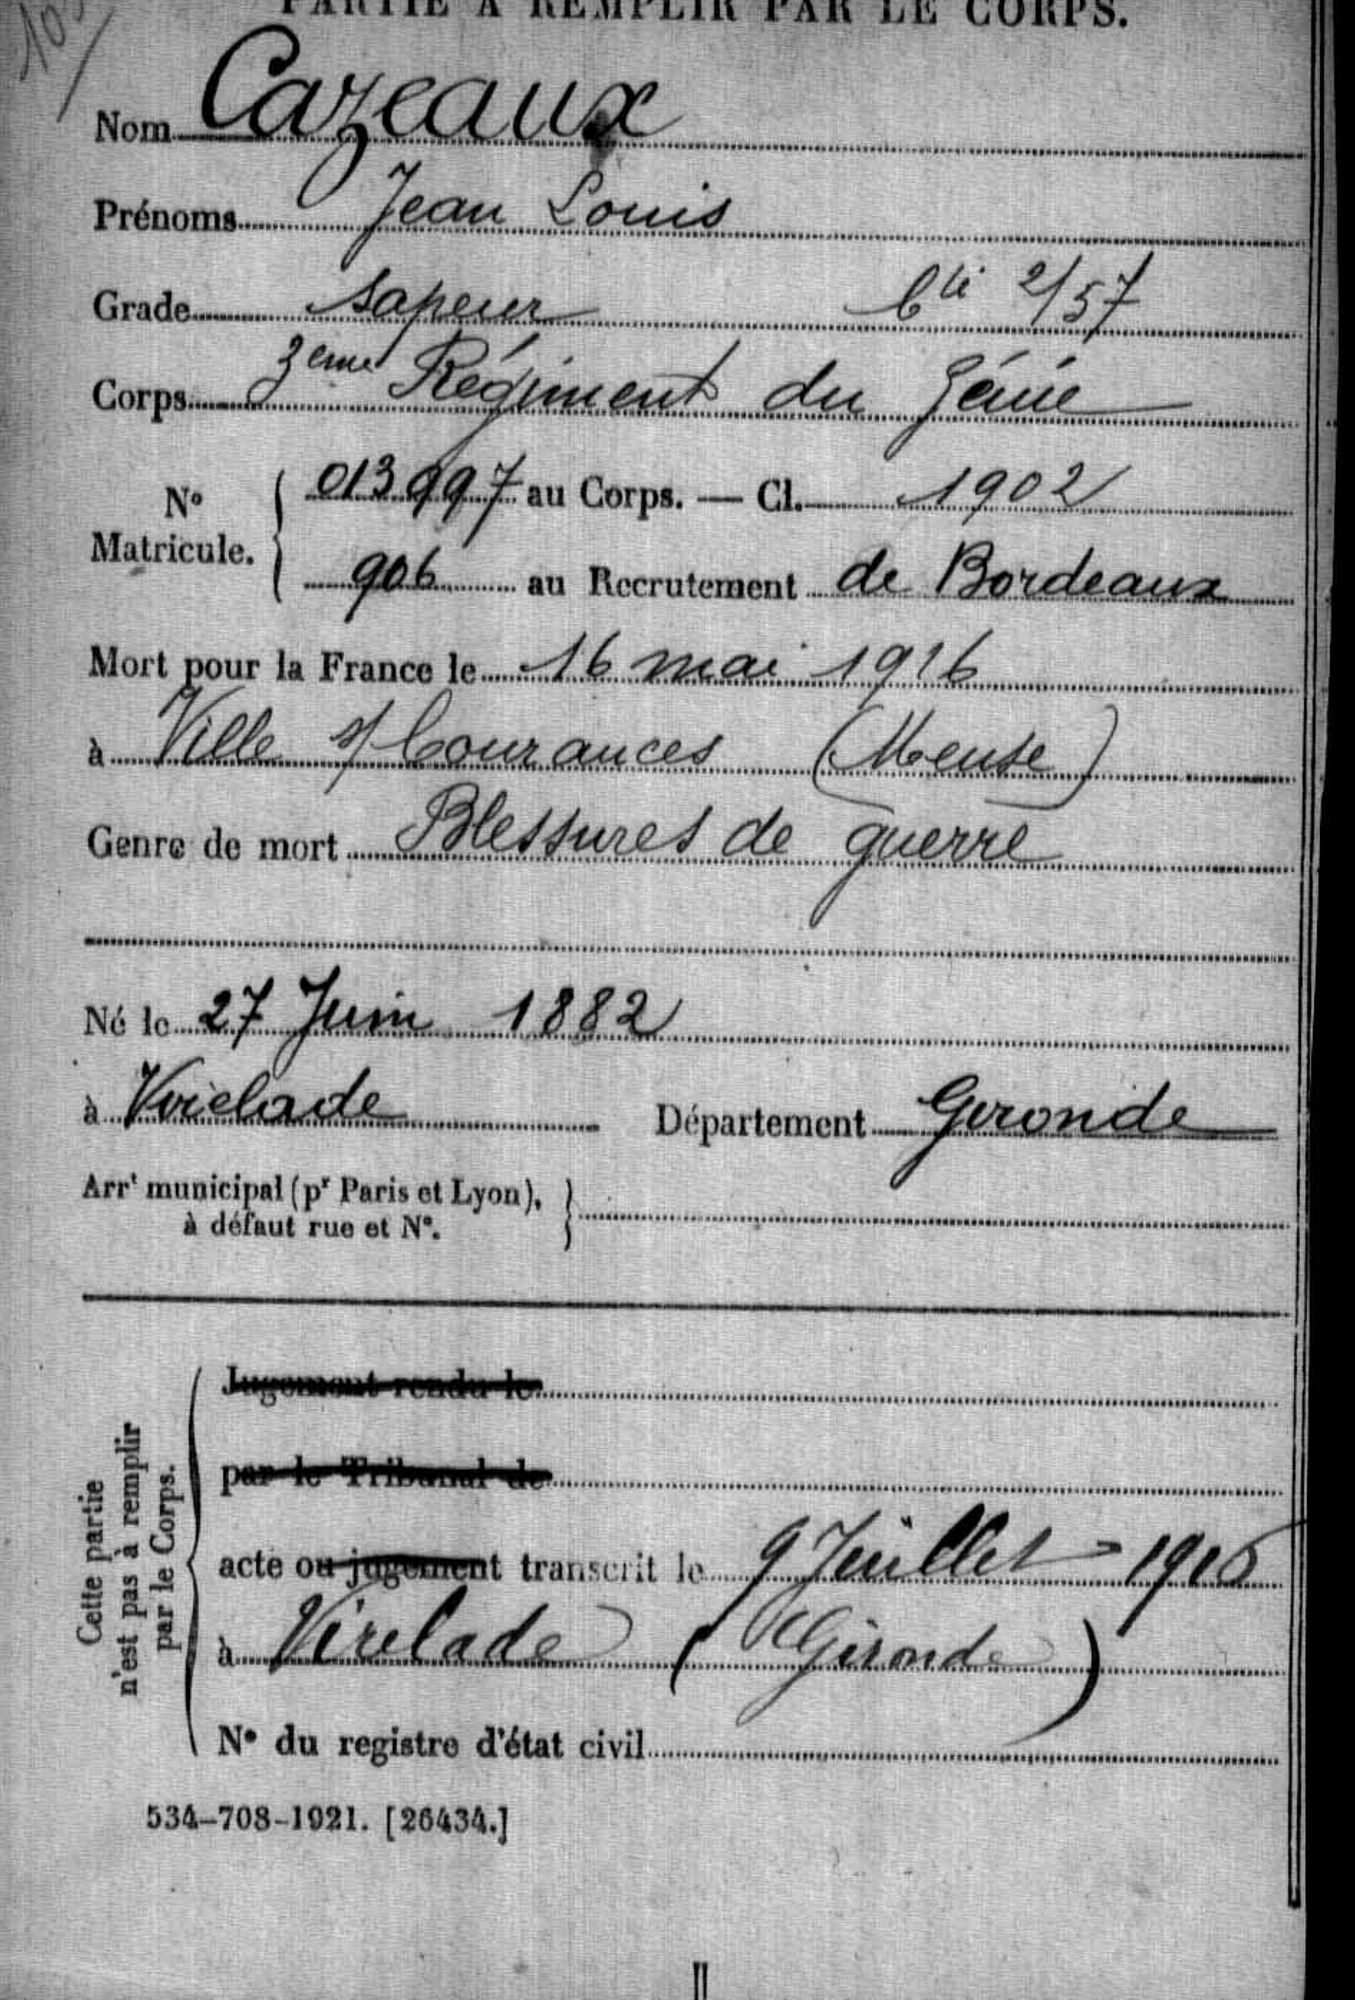 PARTIE A REMPLIR PAR LE CORPS.
Nom Cazeaux
Prénoms Jean Louis
Grade sapeur Cie 2/57
Corps 3eme Régiment du Génie
N° Matricule. 013997 au Corps. — Cl. 1902
906 au Recrutement de Bordeaux
Mort pour la France le 16 mai 1916
à Ville s/ Courances (Meuse)
Genre de mort Blessures de guerre
Né le 27 Juin 1882
à Virelade Département Gironde
Arrt municipal (pr Paris et Lyon),
à défaut rue et N°.
Cette partie
n'est pas à remplir
par le Corps.
Jugement rendu le
par le Tribunal de
acte ou jugement transcrit le 9 Juillet 1916
à Virelade (Gironde)
N° du registre d'état civil
534-708-1921. [26434.]